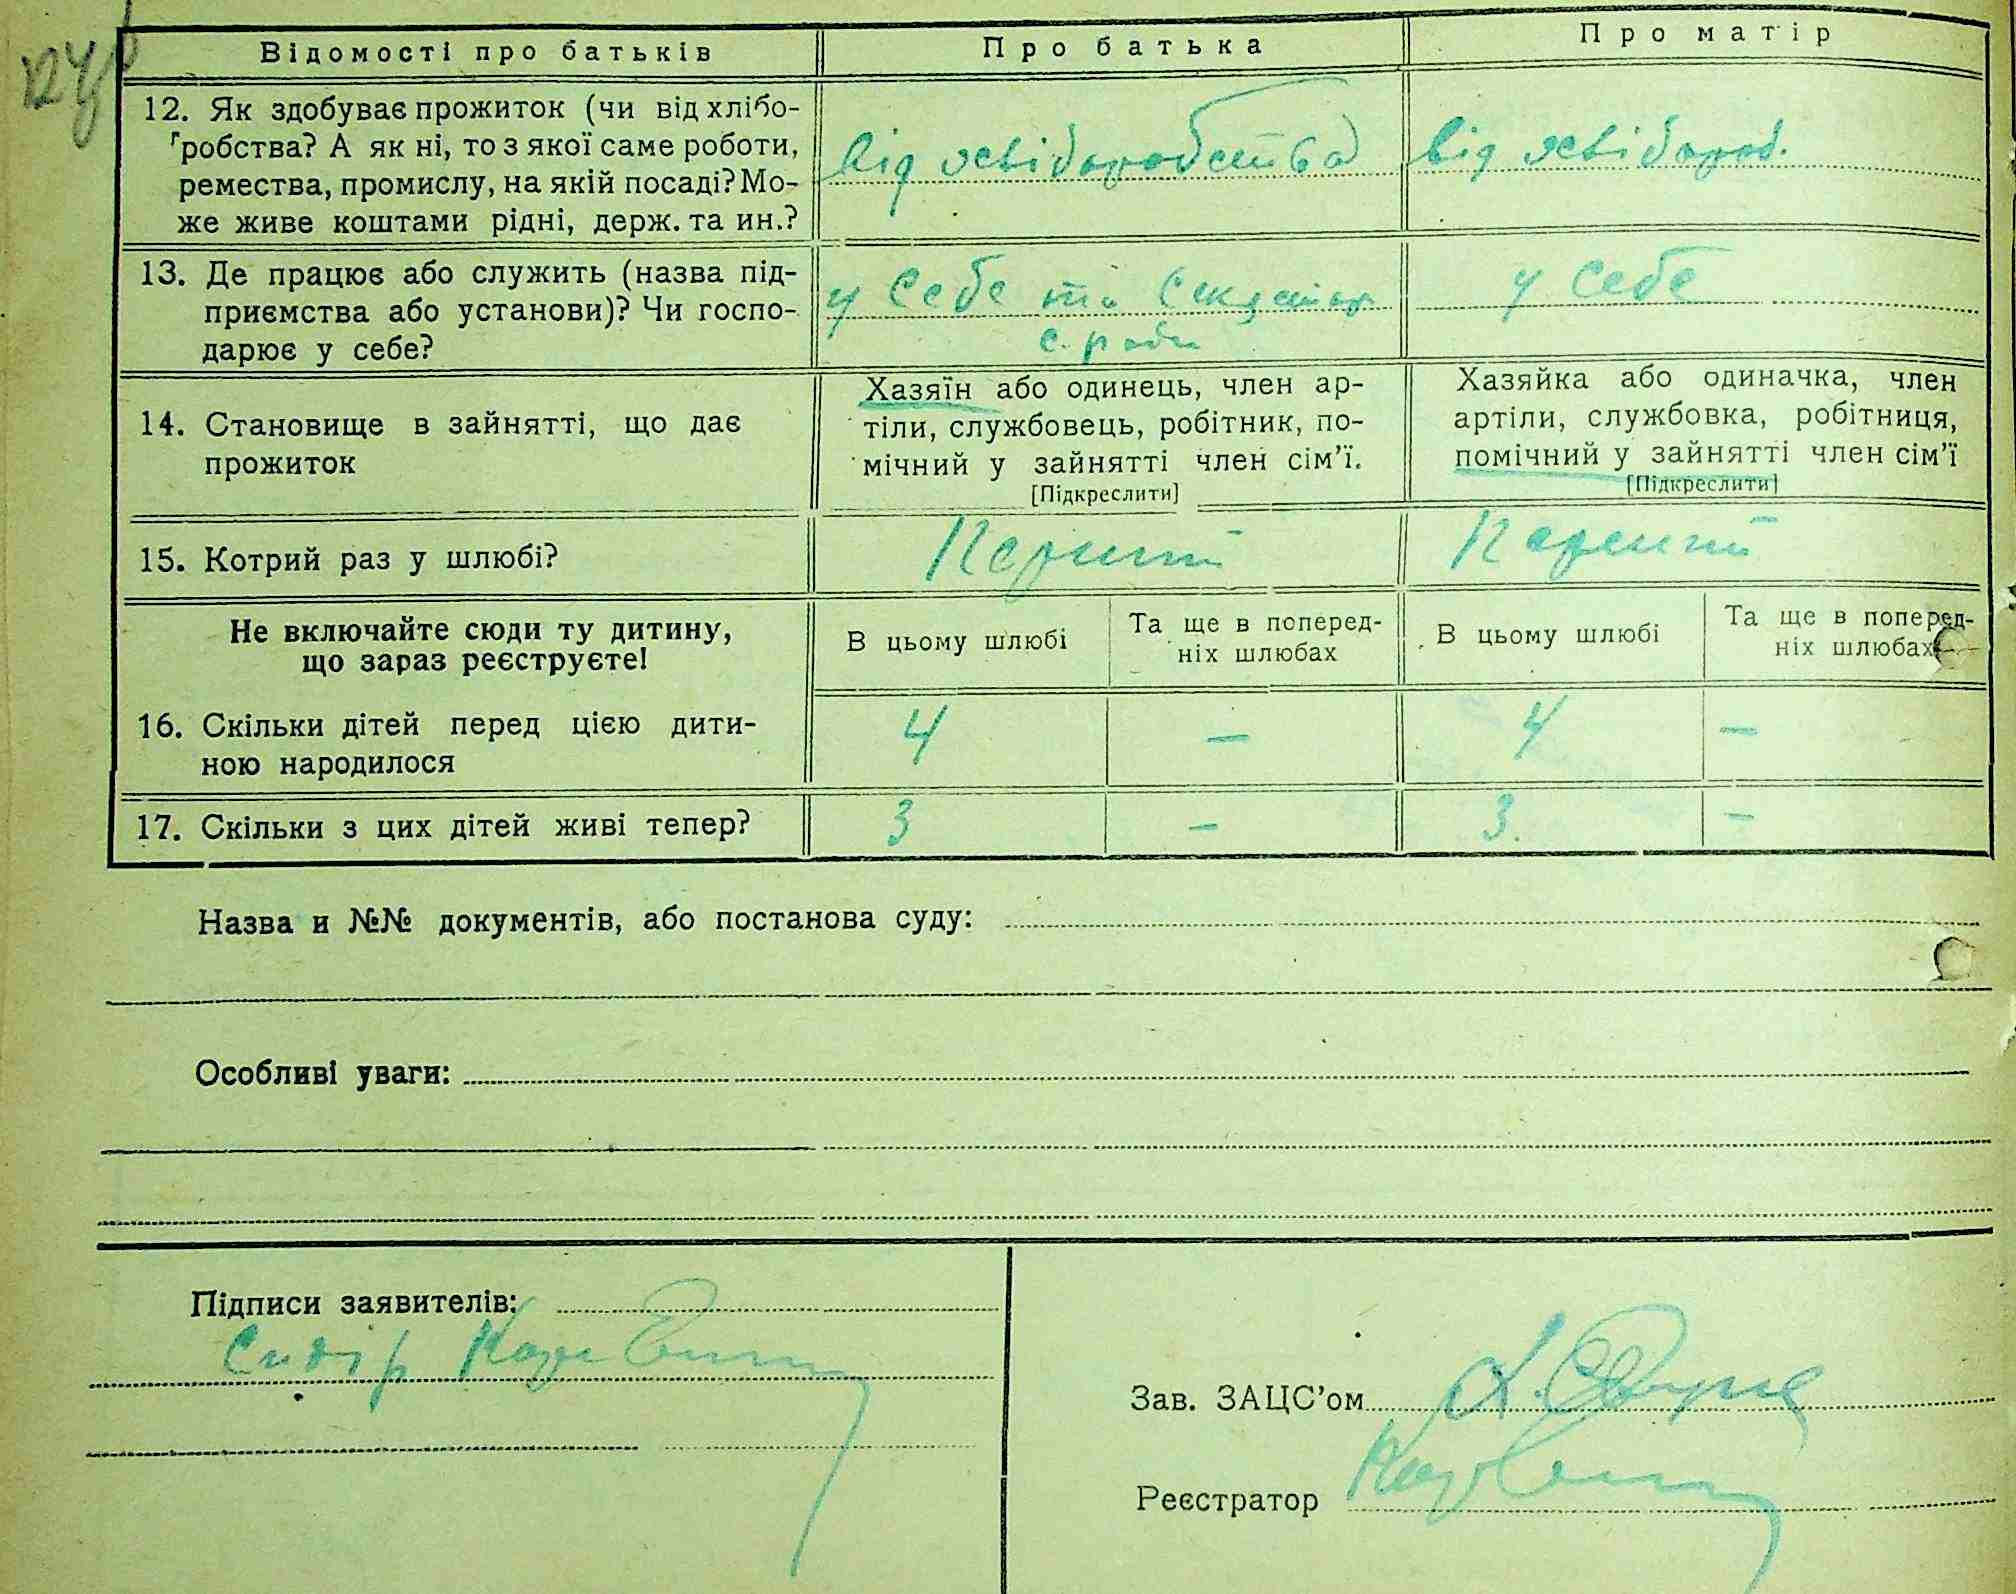 Відомості про батьків
Про батька
Про матір
12. Як здобуває прожиток (чи від хлібо-
робства? А як ні, то з якої саме роботи,
ремества, промислу, на якій посаді? Мо-
же живе коштами рідні, держ. та ин.?
від хліборобства
від хлібороб.
13. Де працює або служить (назва під-
приємства або установи)? Чи госпо-
дарює у себе?
у себе та Секретар
с. ради
у себе
14. Становище в зайнятті, що дає
прожиток
Хазяїн або одинець, член ар-
тіли, службовець, робітник, по-
мічний у зайнятті член сім’ї.
[Підкреслити]
Хазяйка або одиначка, член
артіли, службовка, робітниця,
помічний у зайнятті член сім’ї
[Підкреслити]
15. Котрий раз у шлюбі?
Перший
Перший
Не включайте сюди ту дитину,
що зараз реєструєте!
В цьому шлюбі
Та ще в поперед-
ніх шлюбах
В цьому шлюбі
Та ще в поперед-
ніх шлюбах
16. Скільки дітей перед цією дити-
ною народилося
4 – 4 –
17. Скільки з цих дітей живі тепер?
3 – 3. –
Назва и №№ документів, або постанова суду:
Особливі уваги:
Підписи заявителів:
Сидір
Зав. ЗАЦС’ом
Реєстратор